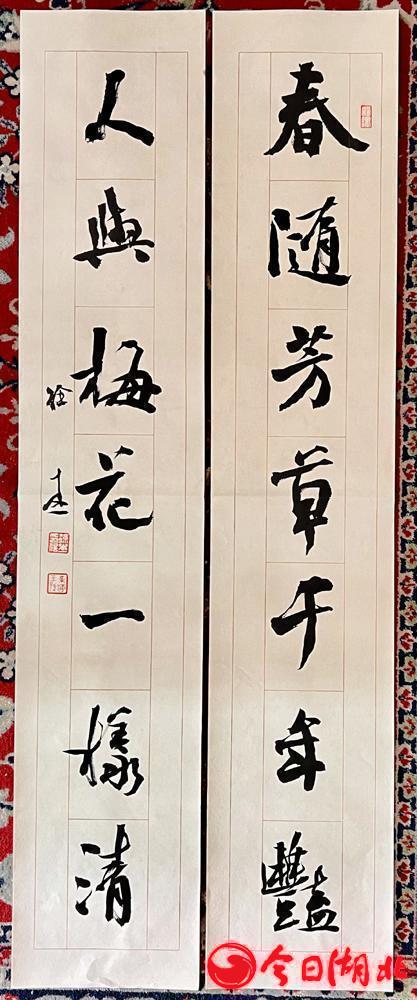 春随芳草千年豔
人與梅花一樣清
今日湖北